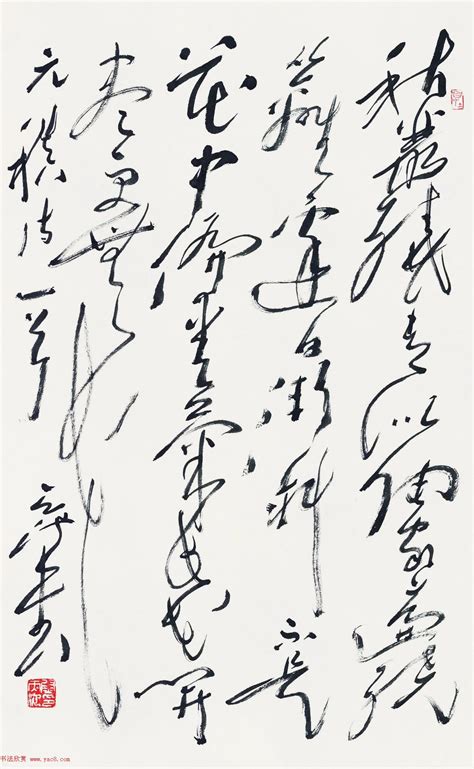 秋叢繞舍似陶家遍繞
籬邊日漸斜不是
花中偏愛菊此花開
盡更無花
元稹詩一首
书法欣赏 www.yac8.com